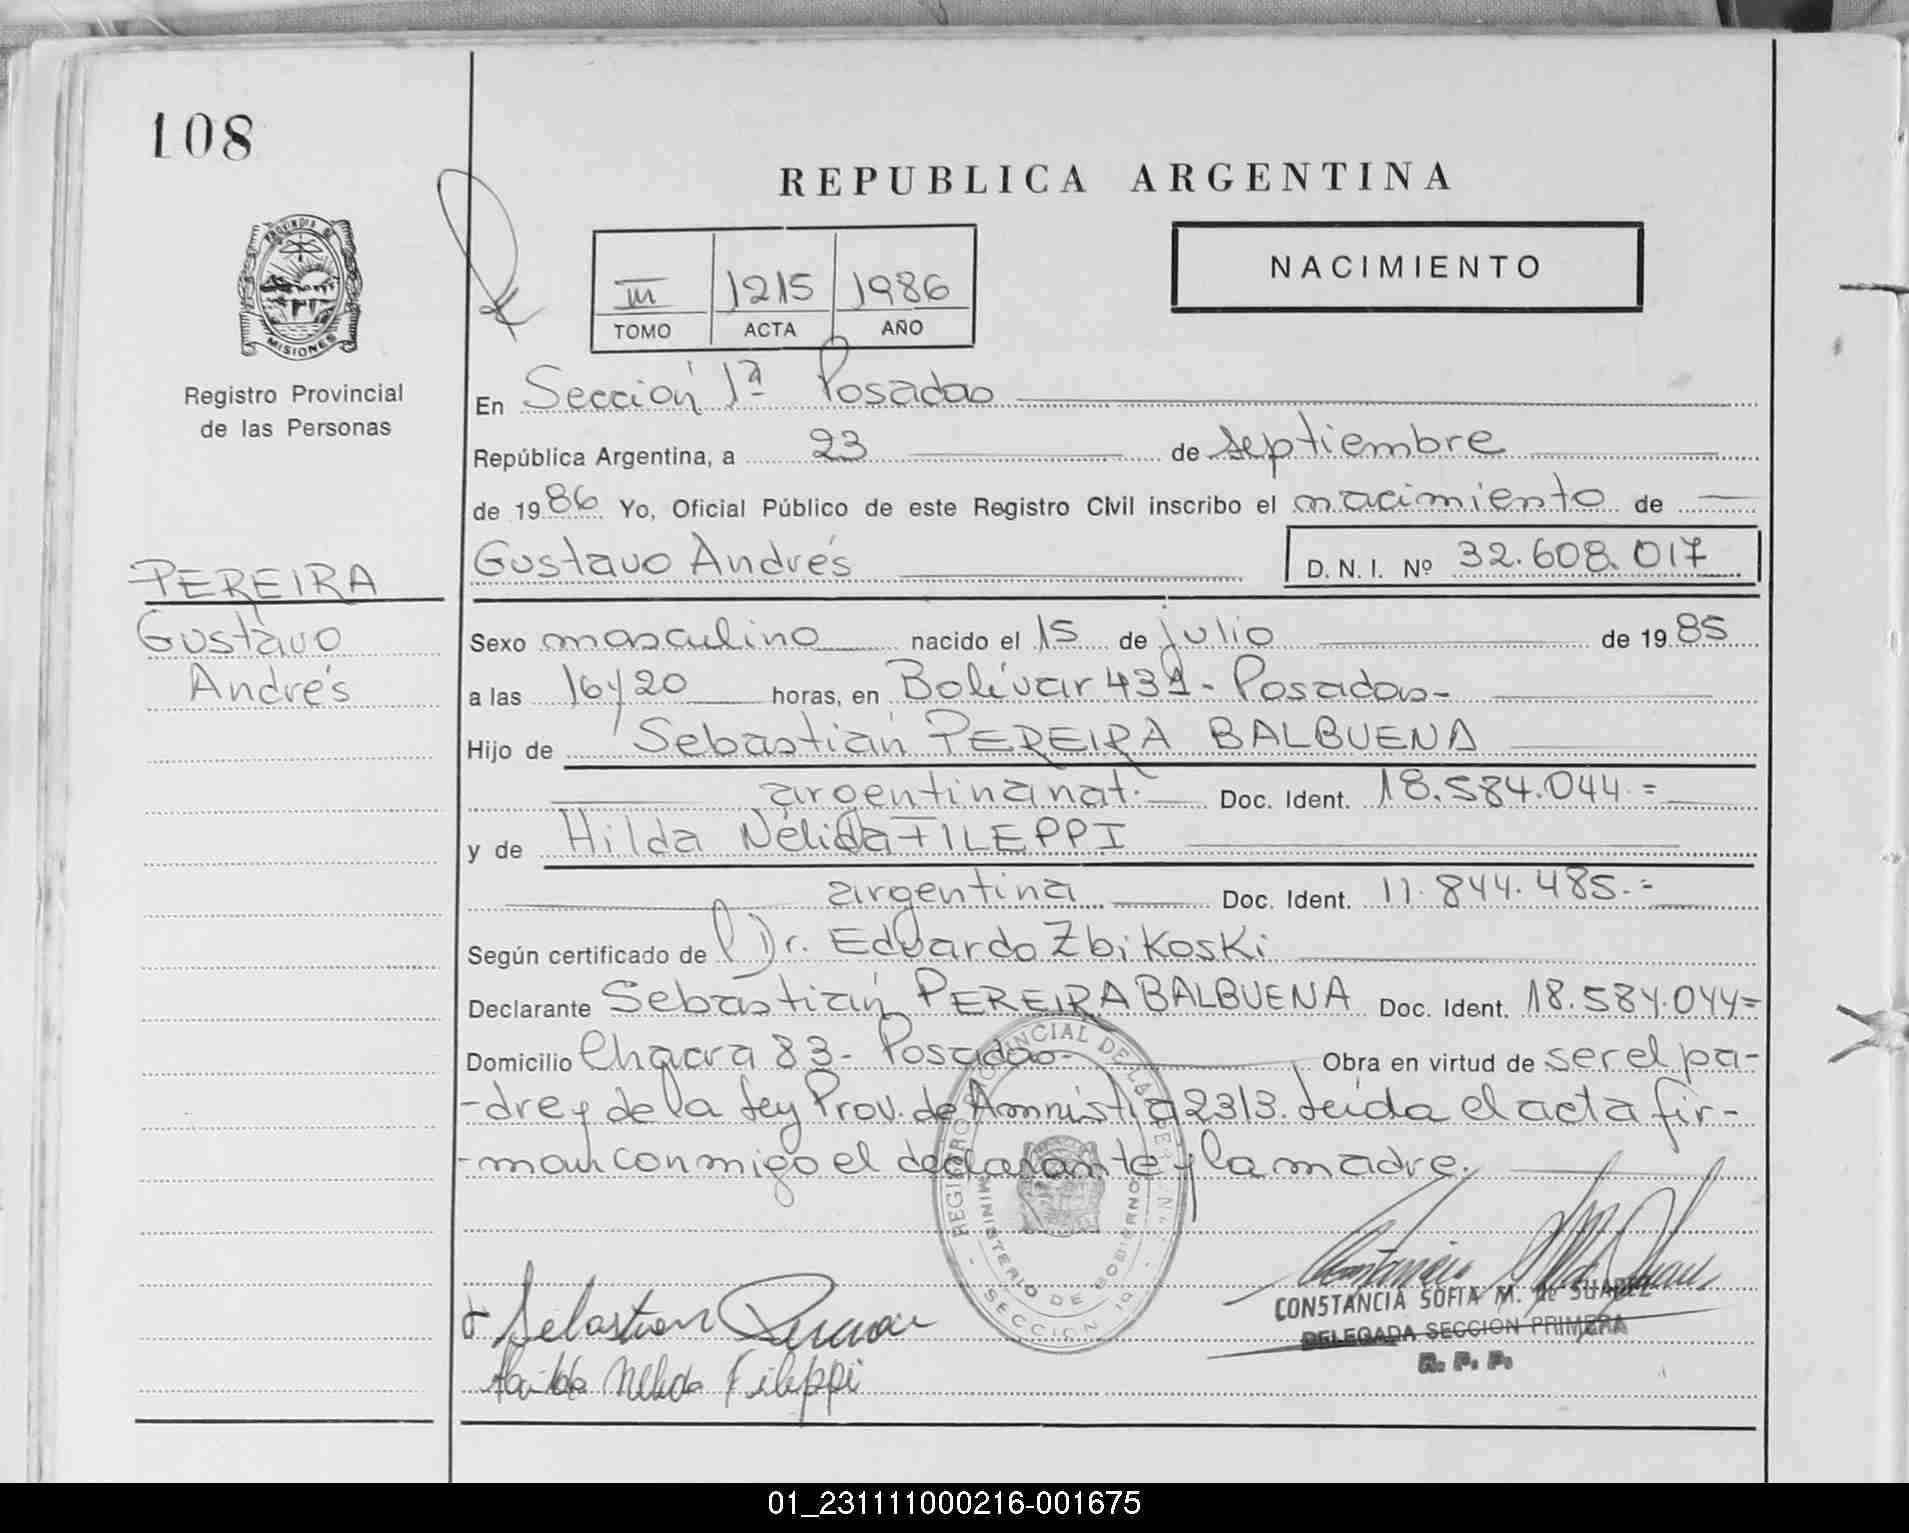 108
REPUBLICA ARGENTINA
PROVINCIA DE
MISIONES
Registro Provincial
de las Personas
III 1215 1986
TOMO ACTA AÑO
NACIMIENTO
En Sección 1ª Posadas
República Argentina, a 23 de septiembre
de 1986 Yo, Oficial Público de este Registro Civil inscribo el nacimiento de
Gustavo Andrés D. N. I. Nº 32.608.017
PEREIRA
Gustavo
Andrés
Sexo masculino nacido el 15 de julio de 1985
a las 16 y 20 horas, en Bolívar 431 - Posadas -
Hijo de Sebastián PEREIRA BALBUENA
argentina nat. Doc. Ident. 18.584.044.=
y de Hilda Nélida FILEPPI
argentina Doc. Ident. 11.844.485.-=
Según certificado de Dr. Eduardo Zbikoski
Declarante Sebastián PEREIRA BALBUENA Doc. Ident. 18.584.044=
Domicilio Chacra 83 - Posadas - Obra en virtud de ser el pa-
-dre y de la Ley Prov. de Amnistía 2313. Leída el acta fir-
-man conmigo el declarante y la madre.
REGISTRO PROVINCIAL DE LAS PER
MINISTERIO DE GOBIERNO
SECCION 1
Sebastian
Nelida Fileppi
CONSTANCIA SOFIA M. de SUAREZ
DELEGADA SECCION PRIMERA
R. P. P.
01_231111000216-001675